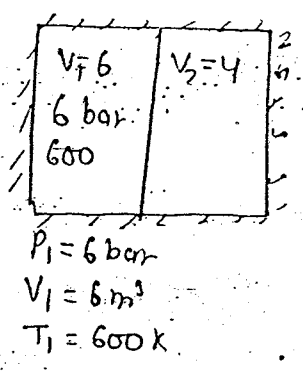 V₁=6
V₂=4
6 bar
600
P₁ = 6 bar
V₁ = 6 m³
T₁ = 600 K